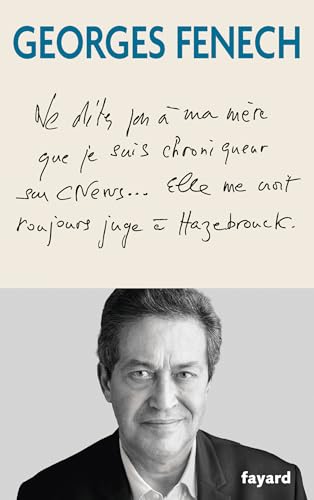 GEORGES FENECH
Ne dites pas à ma mère
que je suis chroniqueur
sur CNews... Elle me croit
toujours juge à Hazebrouck.
fayard